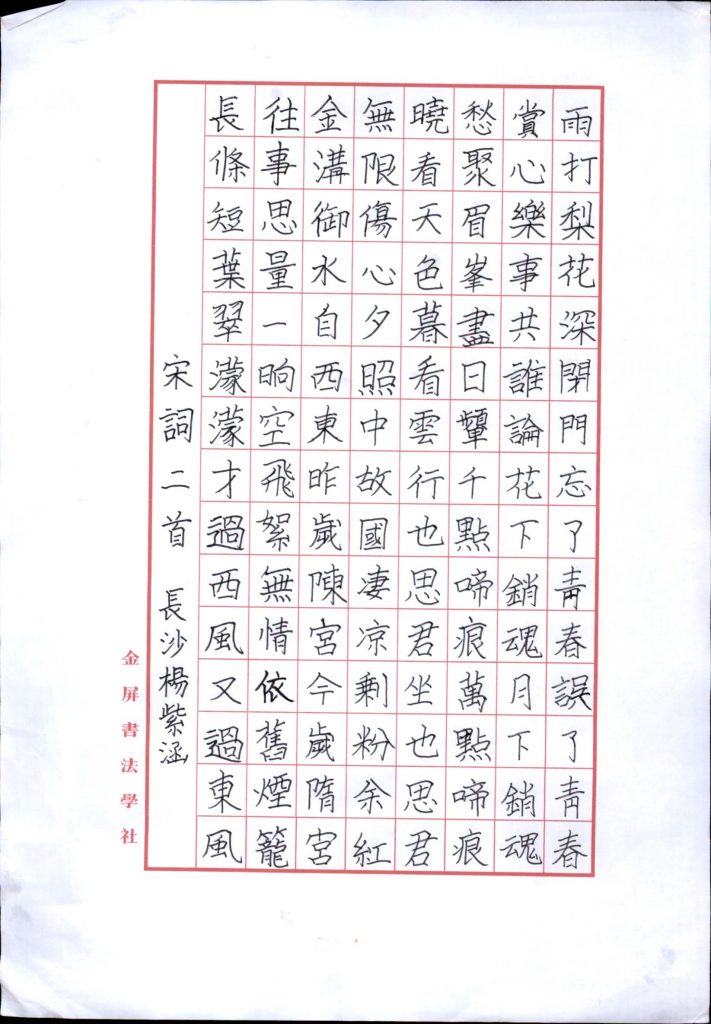 雨打梨花深閉門忘了青春誤了青春
賞心樂事共誰論花下銷魂月下銷魂
愁聚眉峯盡日顰千點啼痕萬點啼痕
曉看天色暮看雲行也思君坐也思君
無限傷心夕照中故國凄凉剩粉余紅
金溝御水自西東昨歲陳宮今歲隋宮
往事思量一晌空飛絮無情依舊煙籠
長條短葉翠濛濛才過西風又過東風
宋詞二首 長沙楊紫涵
金屏書法學社